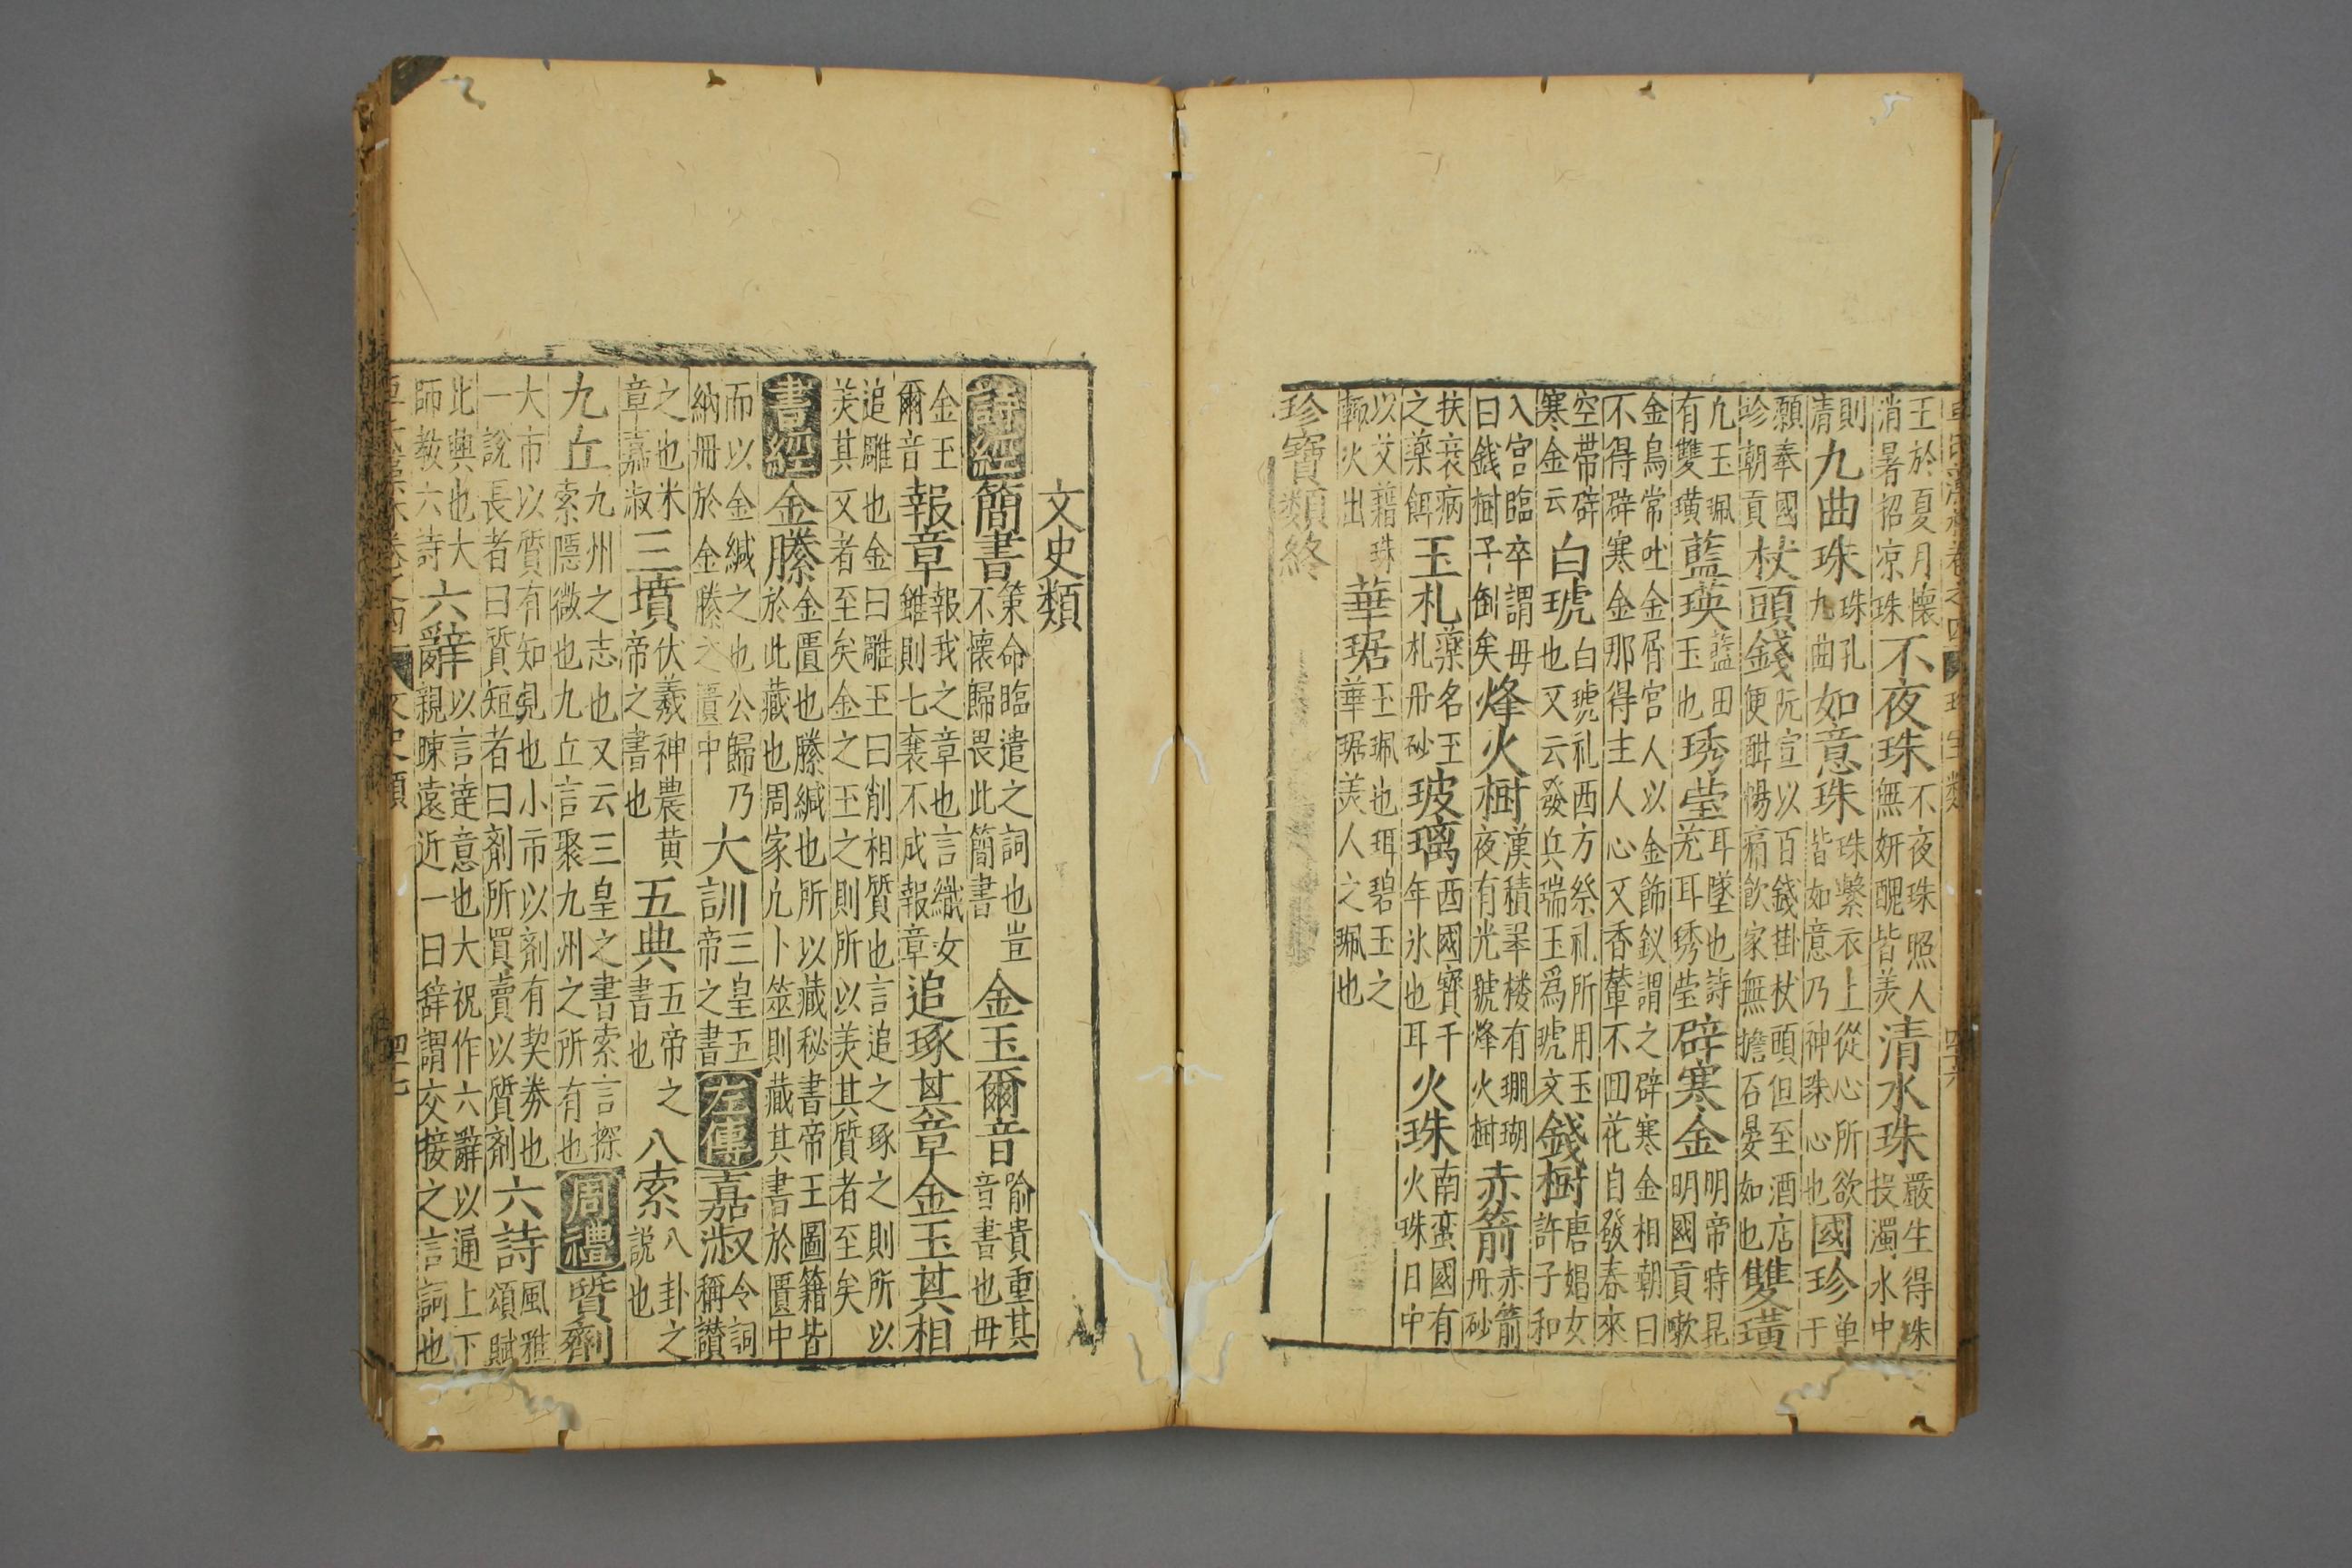 王於夏月懷消暑招凉珠不夜珠不夜珠照人無妍醜皆美清水珠嚴生得珠投濁水中
則清九曲珠珠孔九曲如意珠珠繫衣上從心所欲皆如意乃神珠心也國珍单于
願奉國珍朝貢杖頭錢阮宣以百錢掛杖頭但至酒店便酣暢痛飲家無擔石晏如也雙璜
凢玉珮有雙璜藍瑛藍田玉也琇瑩耳墜也詩充耳琇瑩辟寒金明帝時昆明國貢嗽
金鳥常吐金屑宮人以金飾釵謂之辟寒金相朝曰不得辟寒金那得主人心又香輦不囬花自發春來
空帶辟寒金云白琥白琥礼西方祭礼所用玉也又云發兵瑞玉爲琥文錢樹唐娼女許子和
入宮臨卒謂毋曰錢樹子倒矣烽火樹漢積翠楼有珊瑚夜有光號烽火樹赤箭赤箭丹砂
扶衰病之藥餌玉札藥名玉札丹砂玻璃西國寳千年氷也耳火珠南蛮國有火珠日中
以艾藉珠輙火出華琚玉珮也珥碧玉之華琚美人之珮也
珍寶類終
文史類
詩經簡書策命臨遣之詞也豈不懷歸畏此簡書金玉爾音喻貴重其音書也毋
金玉爾音報章報我之章也言織女雖則七襄不成報章追琢其章金玉其相
追雕也金曰雕玉曰削相質也言追之琢之則所以美其文者至矣金之玉之則所以美其質者至矣
書經金縢金匱也縢緘也所以藏秘書帝王圖籍皆於此藏也周家凢卜筮則藏其書於匱中
而以金緘之也公歸乃納冊於金縢之匱中大訓三皇五帝之書左傳嘉淑令詞稱讃
之也米章嘉淑三墳伏羲神農黄帝之書也五典五帝之書也八索八卦之說也
九丘九州之志也又云三皇之書索言探索隱微也九丘言聚九州之所有也周禮質劑
大市以質有知見也小市以劑有契券也一說長者曰質短者曰劑所買賣以質劑六詩風雅頌賦
比興也大師教六詩六辭以言達意也大祝作六辭以通上下親踈遠近一曰辞謂交接之言詞也
文史類